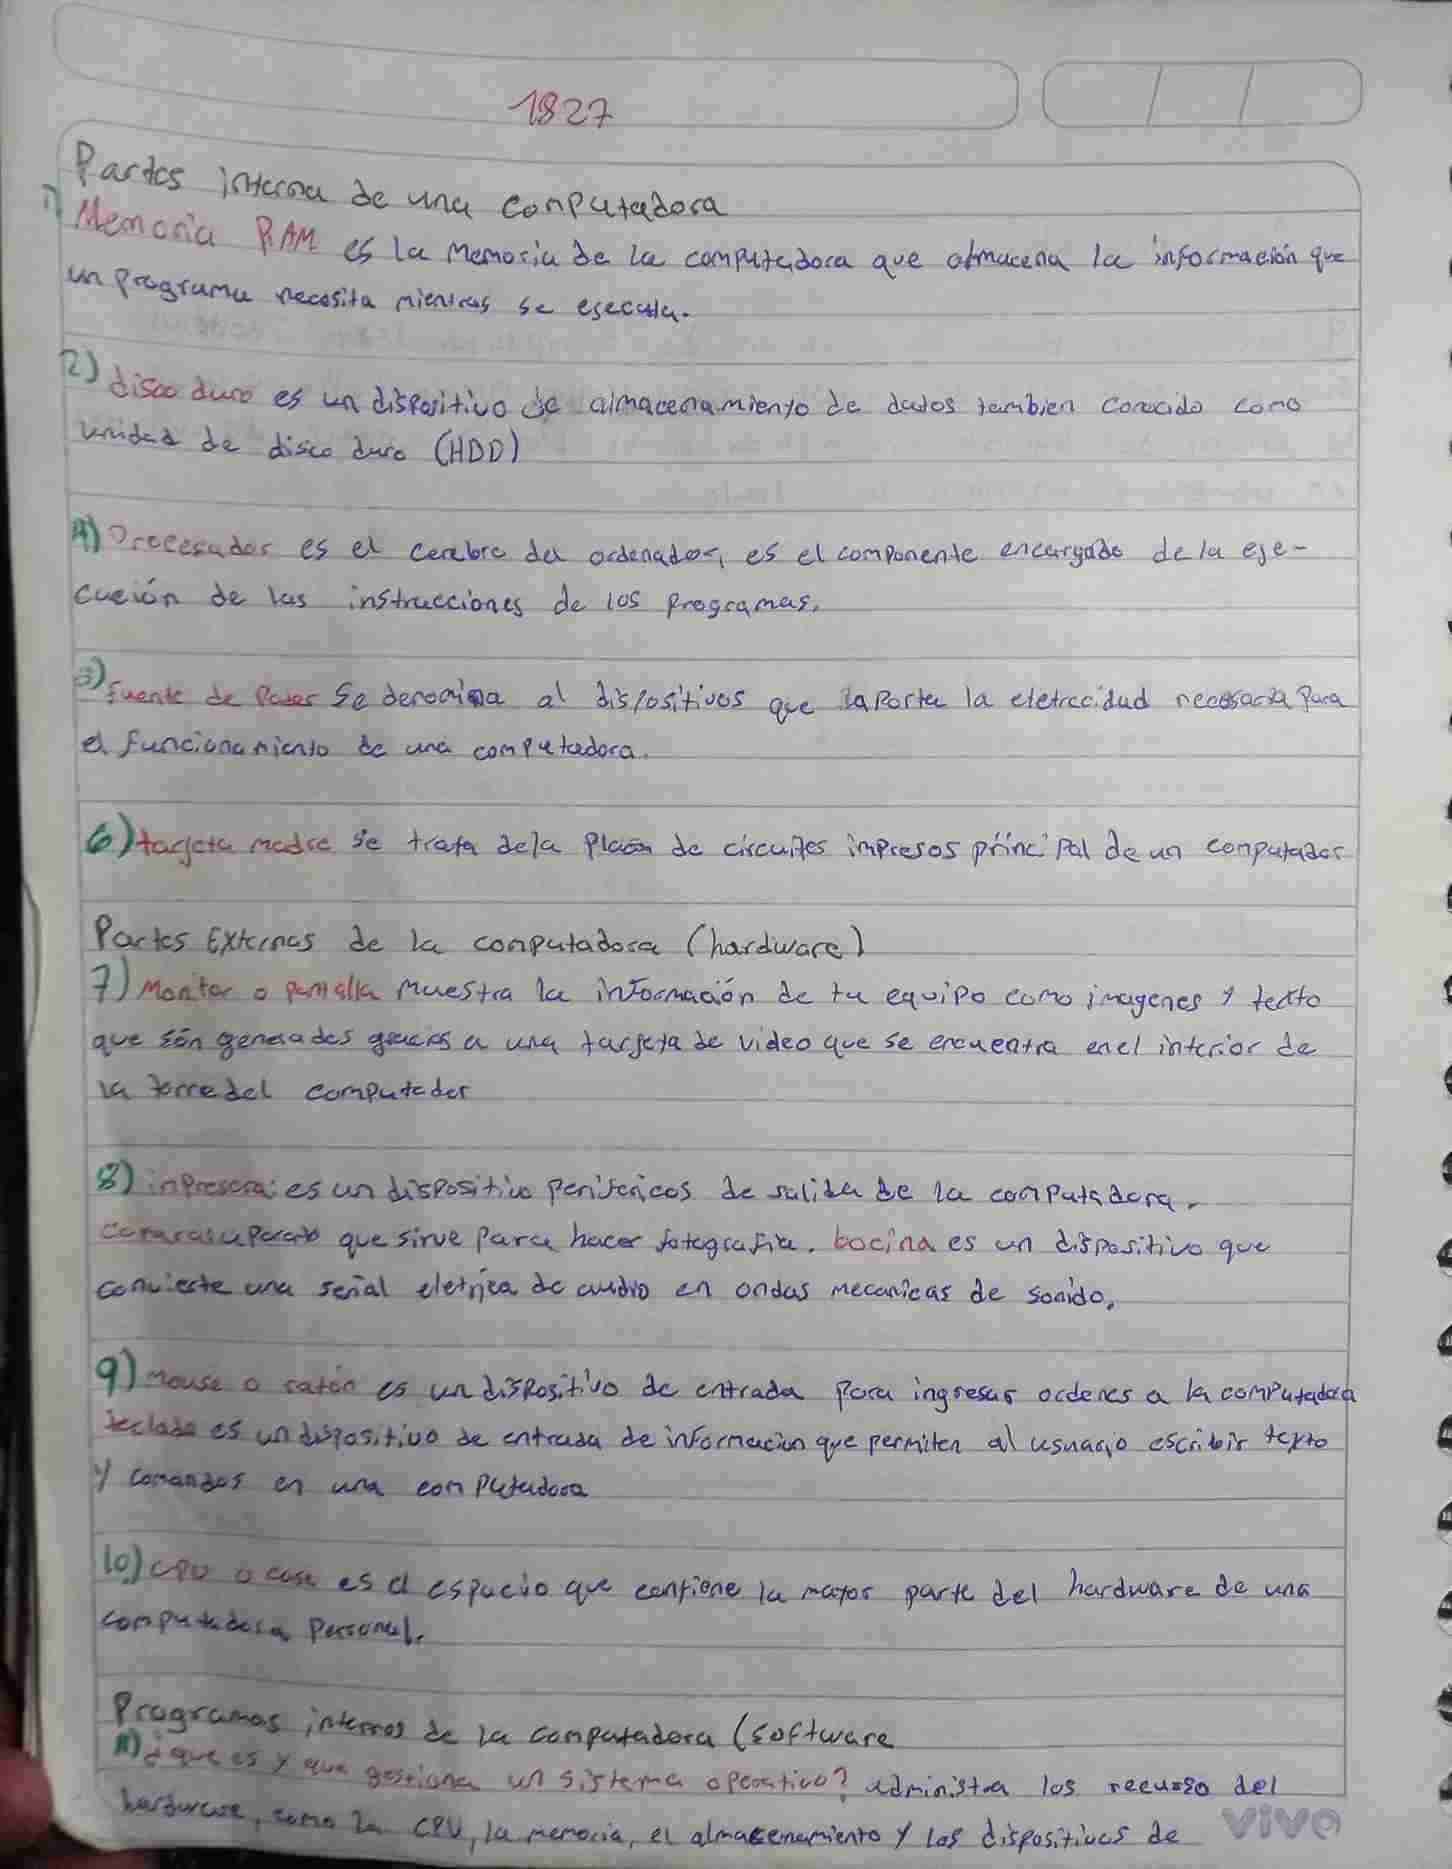 1827
Partes interna de una computadora
1) Memoria RAM es la memoria de la computadora que almacena la información que
un programa necesita mientras se esecuta.
2) disco duro es un dispositivo de almacenamiento de datos tambien conocido como
unidad de disco duro (HDD)
4) Procesador es el cerebro del ordenador, es el componente encargado de la eje-
cución de las instrucciones de los programas.
5) fuente de Poder Se denomina al dispositivos que aporta la eletrecidad necesaria para
el funcionamiento de una computadora.
6) tarjeta madre se trata dela placa de circuitos impresos principal de un computador
Partes Externas de la computadora (hardware)
7) Monitor o pantalla muestra la información de tu equipo como imagenes y texto
que són generados gracias a una tarjeta de video que se encuentra enel interior de
la torre del computador
8) inpresora: es un dispositivo perifericos de salida de la computadora.
camara: aparato que sirve para hacer fotografia. bocina es un dispositivo que
convierte una señal eletrica de audio en ondas mecanicas de sonido.
9) mouse o ratón es un dispositivo de entrada para ingresar ordenes a la computadora
teclado es un dispositivo de entrada de informacion que permiten al usuario escribir texto
y comandos en una computadora
10) CPU o case es el espacio que contiene la mayor parte del hardware de una
computadora personal.
Programas internos de la computadora (software
11) ¿que es y que gestiona un sistema operativo? administra los recurso del
hardware, como la CPU, la memoria, el almacenamiento y los dispositivos de
vivo